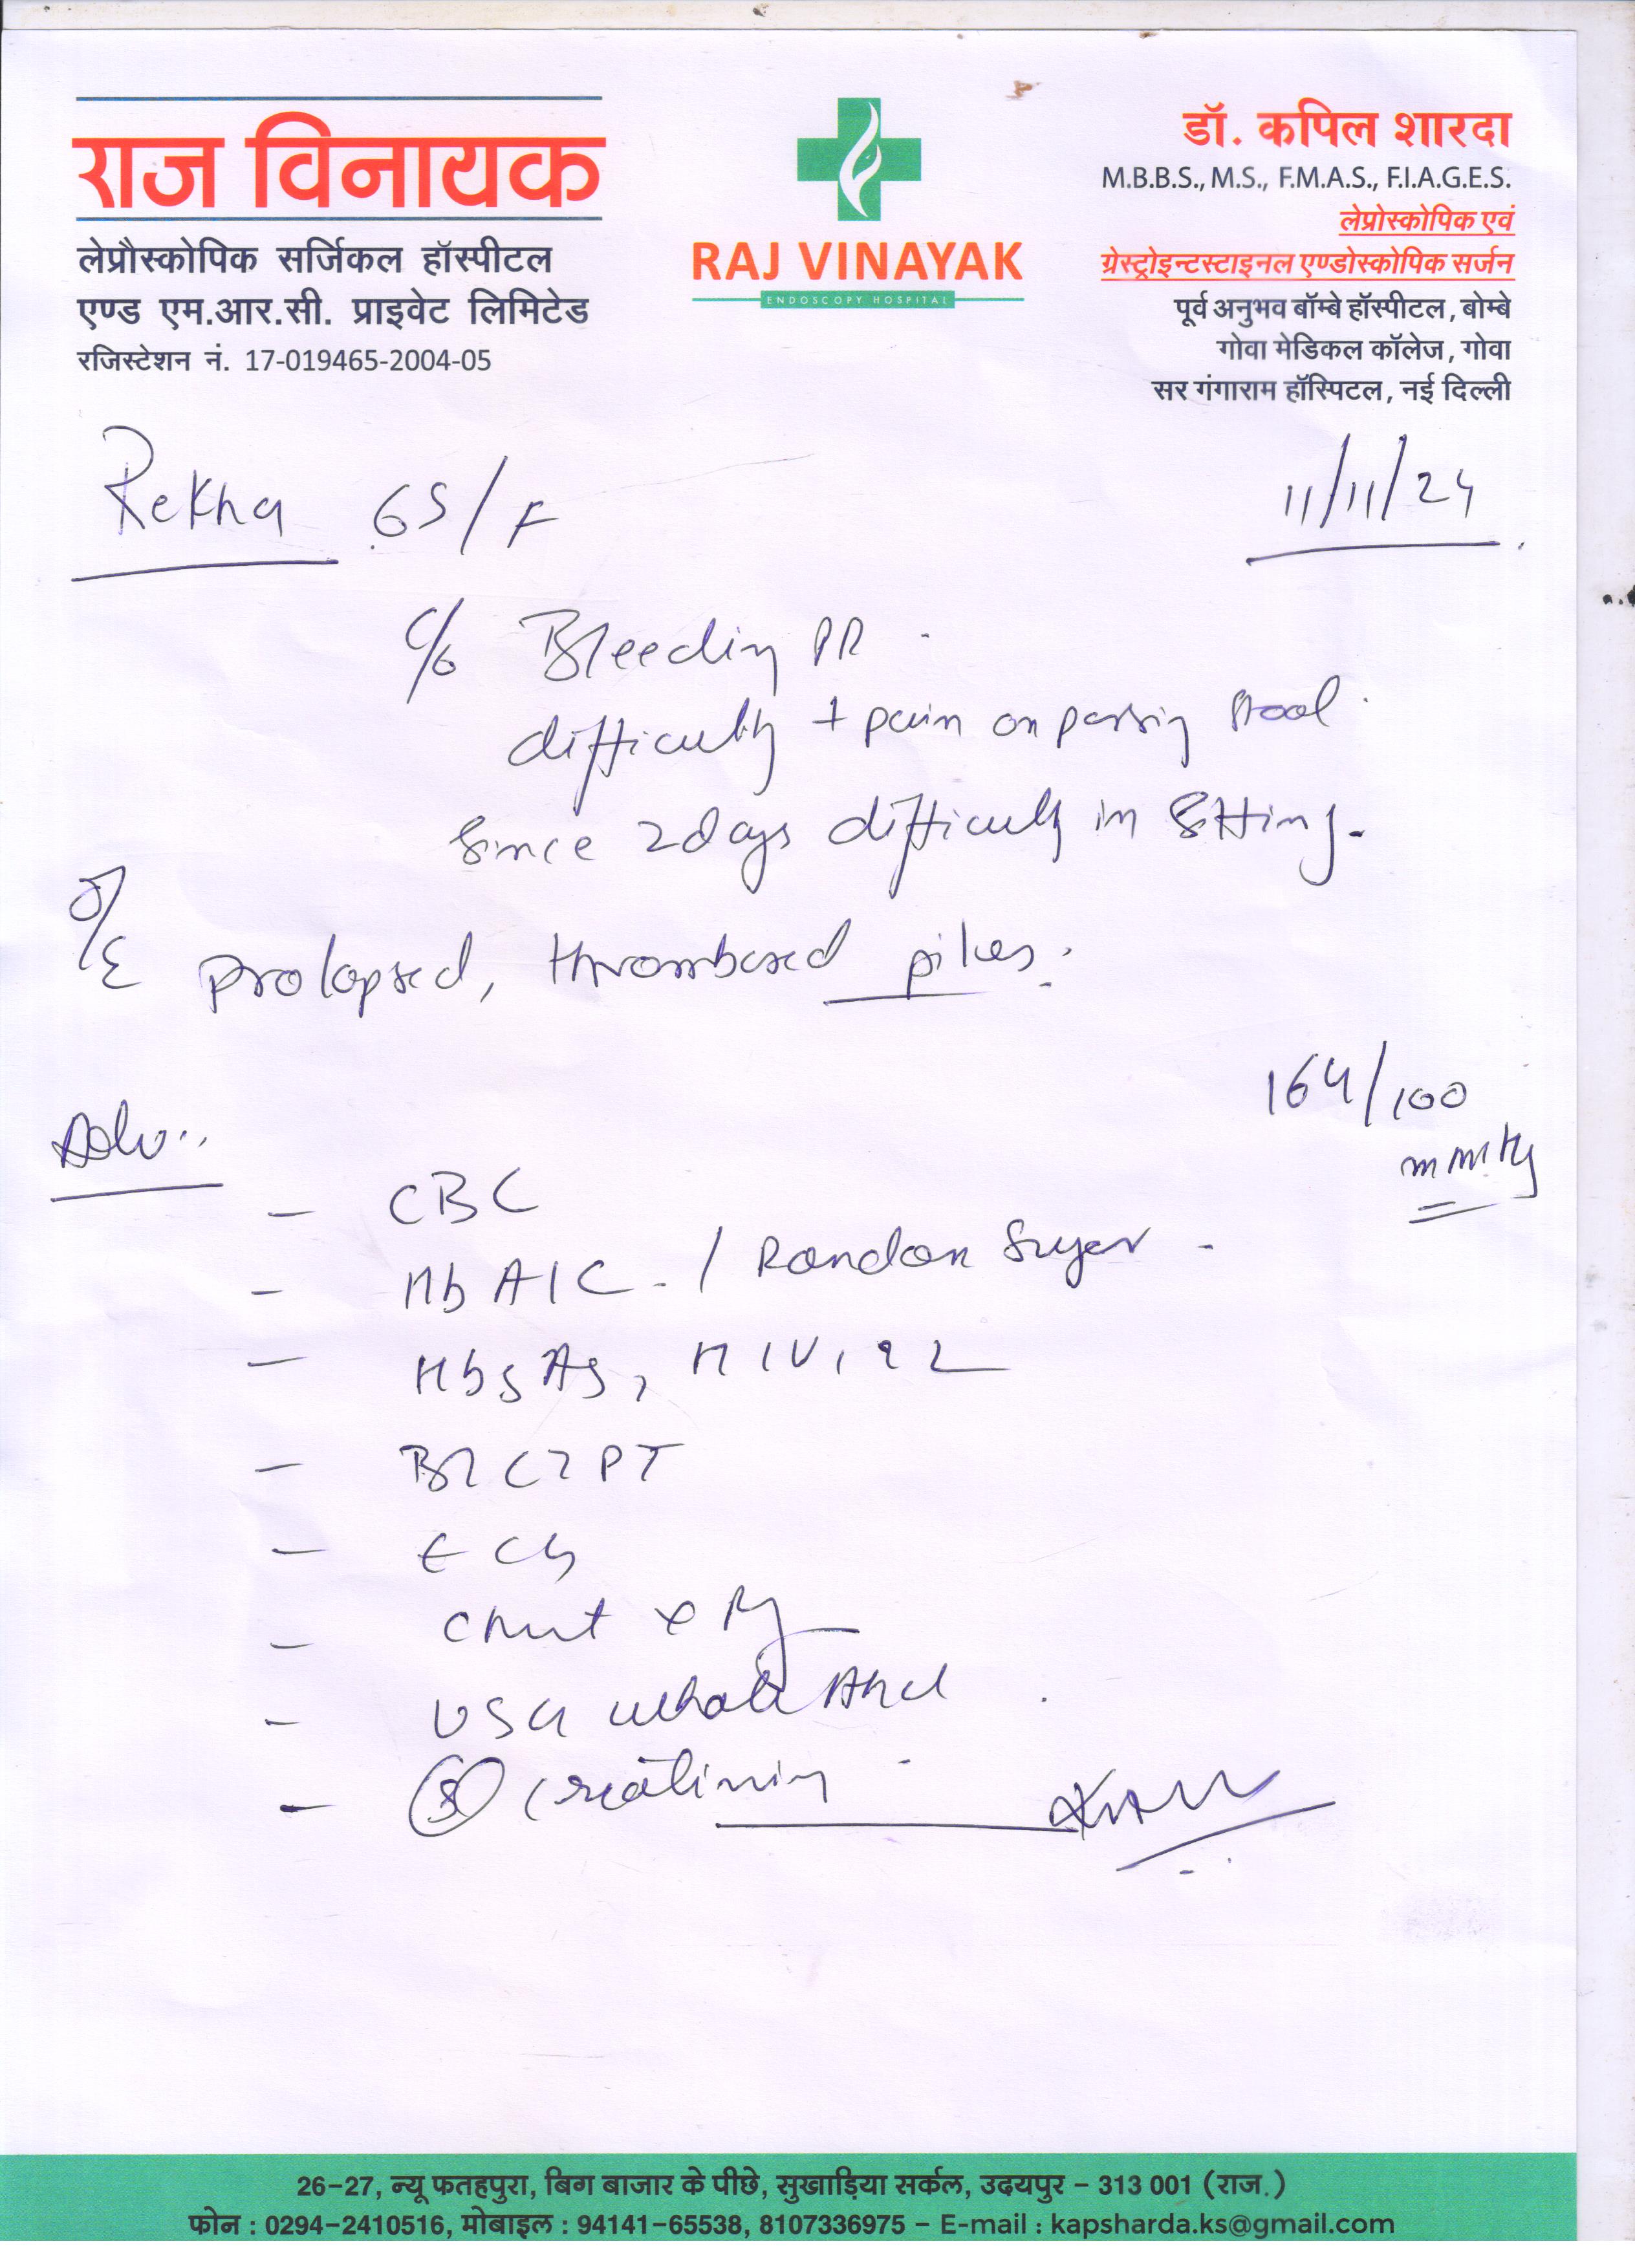 राज विनायक
लेप्रौस्कोपिक सर्जिकल हॉस्पीटल
एण्ड एम.आर.सी. प्राइवेट लिमिटेड
रजिस्टेशन नं. 17-019465-2004-05
RAJ VINAYAK
ENDOSCOPY HOSPITAL
डॉ. कपिल शारदा
M.B.B.S., M.S., F.M.A.S., F.I.A.G.E.S.
लेप्रोस्कोपिक एवं
ग्रेस्ट्रोइन्टस्टाइनल एण्डोस्कोपिक सर्जन
पूर्व अनुभव बॉम्बे हॉस्पीटल, बोम्बे
गोवा मेडिकल कॉलेज, गोवा
सर गंगाराम हॉस्पिटल, नई दिल्ली
Rekha 65/F
11/11/24
c/o Bleeding PR
difficulty + pain on passing stool.
Since 2 days difficulty in sitting.
O/E Prolapsed, thrombosed piles.
164/100
mmHg
Adv..
- CBC
- HbA1C. / Random Sugar -
- HbsAg, HIV,
- BT CT PT
- ECG
- Chest x Ray
- USG whole Abd.
- (S) Creatinin
26-27, न्यू फतहपुरा, बिग बाजार के पीछे, सुखाड़िया सर्कल, उदयपुर - 313 001 (राज.)
फोन : 0294-2410516, मोबाइल : 94141-65538, 8107336975 - E-mail : kapsharda.ks@gmail.com